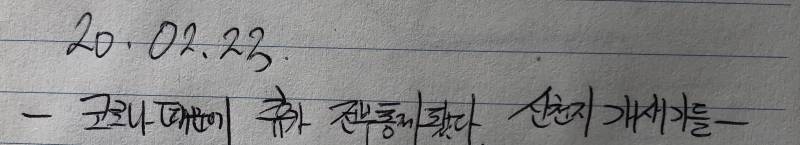 20. 02. 23.
- 코로나 때문에 휴가 전부통제 됐다 신천지 개새기들-